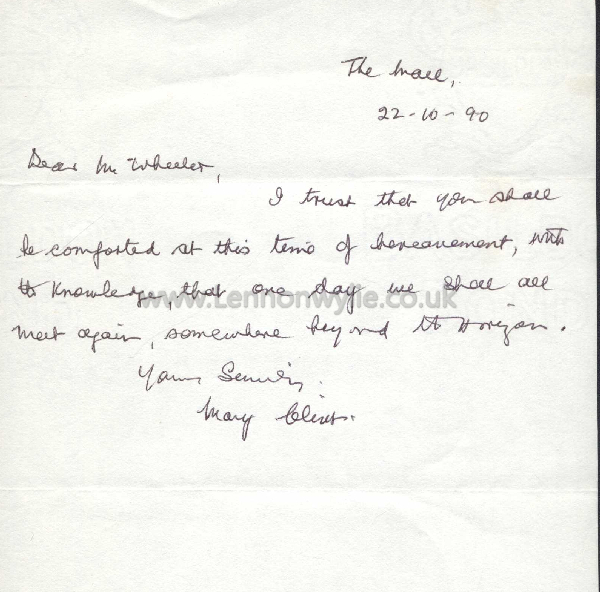 The Mall,
22-10-90
Dear Mr Wheeler,
I trust that you shall
be comforted at this time of bereavement, with
the knowledge, that one day we shall all
meet again, somewhere beyond the Horizon.
www.Lennonwylie.co.uk
Yours Sincerely,
Mary